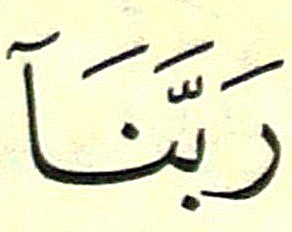 رَبَّنَآ